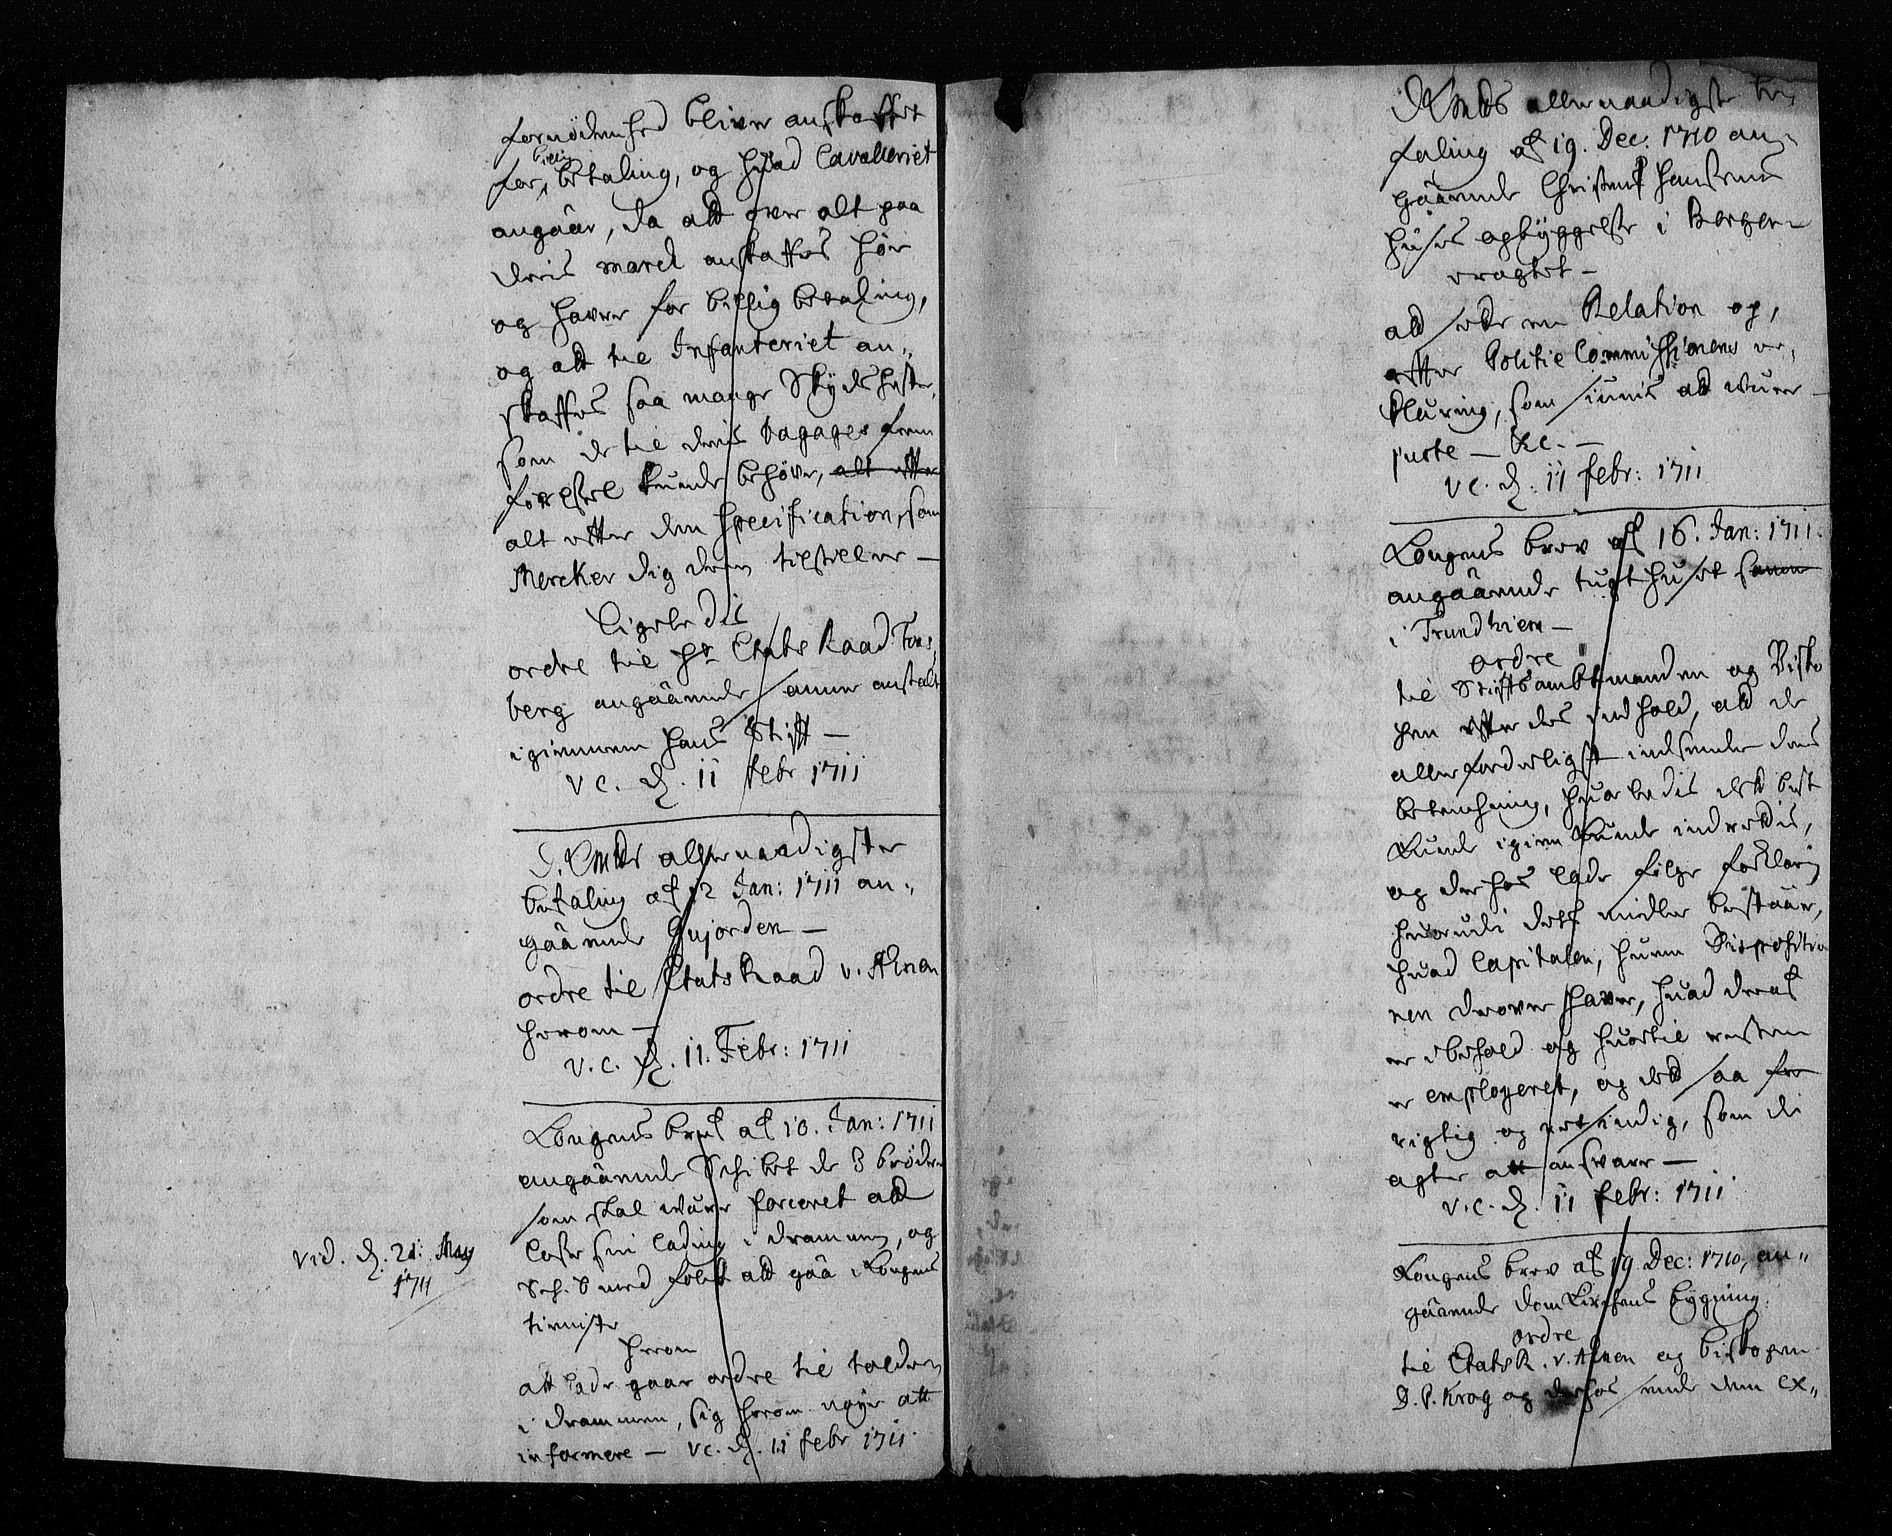 fornödenhed bliver anskaffet
for billig betaling, og hvad Cavalleriet
angaar, da att over alt paa
deris march anskaffes höe
og haver for billig betaling,
og att til Infanteriet an-
skaffes saa mange Skyds heste,
som de til deris bagages frem
förelse kunde behöve, alt efter
alt efter den specification, som
Mercker dig dem tilstiller —
Ligeledis
ordre til Hr. Etats Raad Tons-
berg angaaende samme anstalt
igiennem hans Stift —
v c. d. 11 febr 1711
D. Cmds allernaadigste
befaling af 12 Jan: 1711 an-
gaaende Gujorden —
ordre til Etats Raad v. Ahnen
herom —
v. c. d. 11. Febr: 1711
Kongens bref af 10. Jan: 1711
angaaende Schibet de 3 brödre
som skal være forceret att
losse sin lading i drammen, og
Sch. med folck att gaa i Kongens
tienniste
herom
att lade gaar ordre til tolderen
i drammen, sig herom nöye att
informere — vc. d. 11 febr 1711.
Vid. d. 21. May
1711
D Cmds allernaadigste be-
faling af 19. Dec: 1710 an-
gaaende Christens Hansens
huses opbyggelse i Bergen
att være en Relation op,
efter Politie Commissionens er-
klæring, som siunis att være
juste — &c. —
v c. d. 11 febr: 1711
Kongens brev af 16. Jan: 1711.
angaaende tugthuset
i Trundhiem —
ordre
til Stiftsambtmanden og Bisko-
pen efter des indhold, att de
allerforderligst indsender deris
betenckning, huorledis det best
kunde igien kunde indrettis,
og derhos lade fölge forklaring
huorudi dets midler bestaar,
huad Capitalen, huem Dispositio-
nen derover haver, huad deraf
er i behold og huortil resten
er employeret, og det saa
rigtig og , som de
agter att ansvare —
v. c. d. 11 febr: 1711
Kongens brev af 19. Dec: 1710, an-
gaaende domkirchens bygning.
ordre
til EtatsR. v. Ahnen og biskopen
D. P. Krog og derhos sende dem ex-